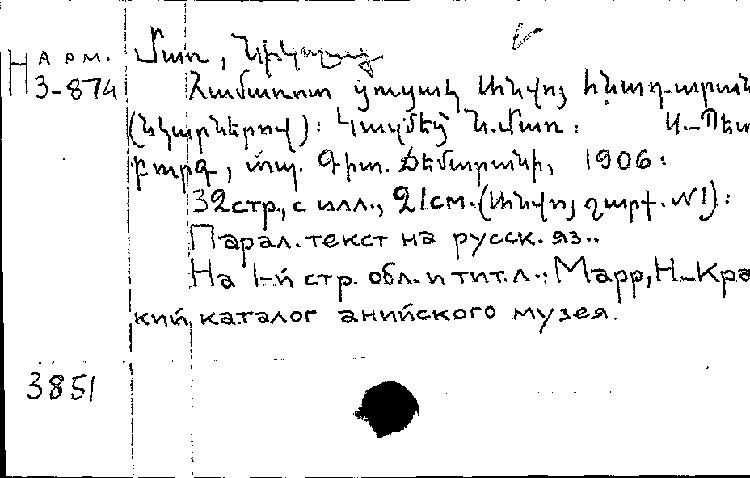 Н АРМ. 3-874
Մառ, Նիկողայ
Համառօտ ցուցակ Անիոյ հնադարան
(նկարներով): Կազմեց Ն.Մառ: Ս.-Պետ
բուրգ, տպ. Գիտ. Ճեմարանի, 1906:
32стр., с илл., 21см. (Անիոյ շարք. №1):
Парал. текст на русск. яз..
На 1-й стр. обл. и тит. л.: Марр, Н.-Кра
кий каталог анийского музея.
3851